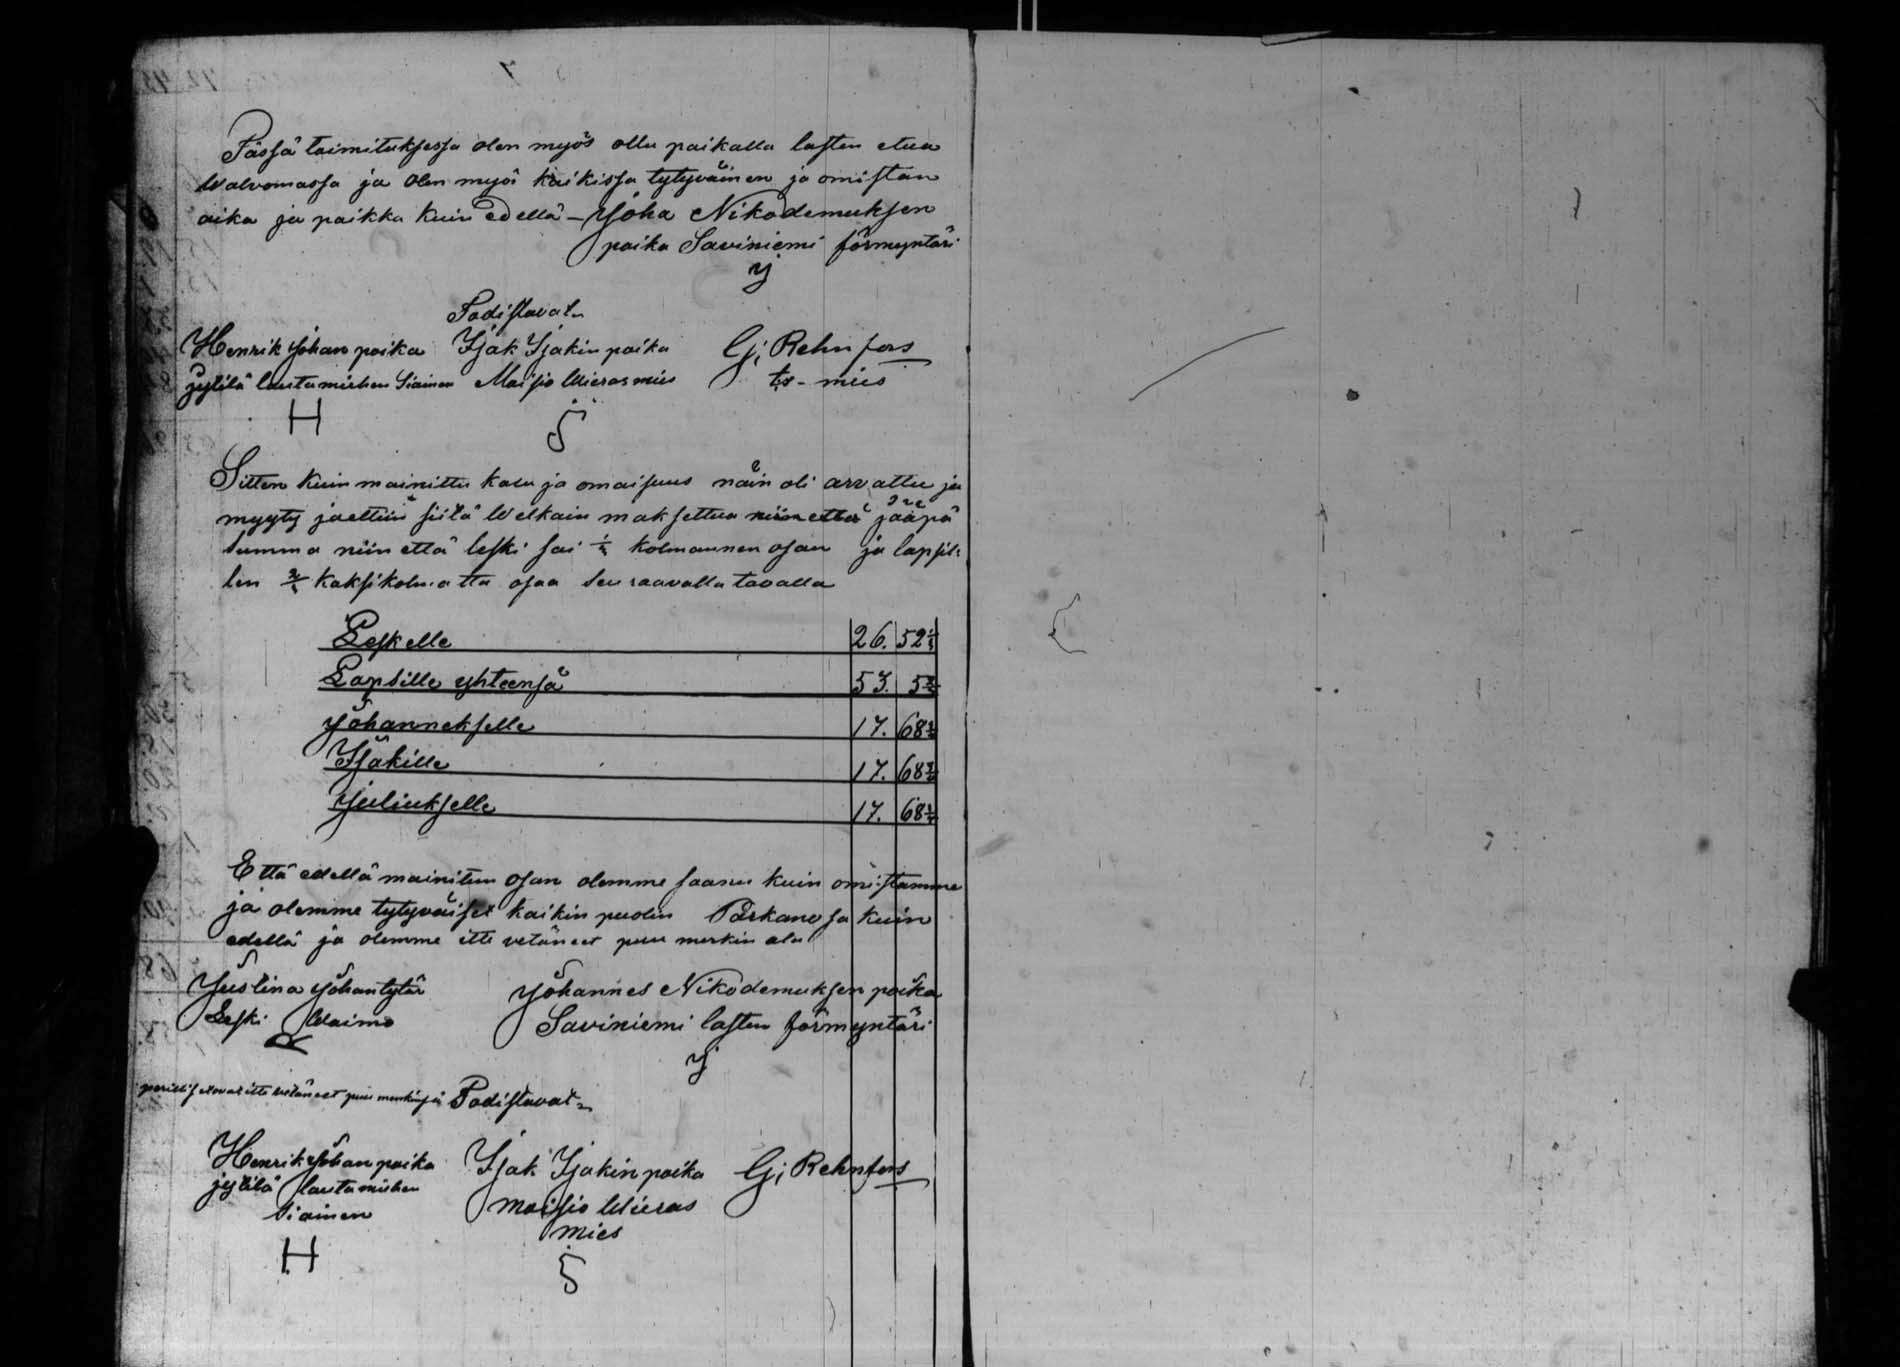 Tässä toimituksessa olen myös ollu paikalla lasten etua
Walvomassa ja olen myös kaikissa tytyväinen ja omistan
aika ja paikka kuin edellä – Joha Nikodemuksen
poika Saviniemi förmyntäri
J
Todistavat
Henrik Johan poika Isak Isakin poika G; Rehnfors
Jylilä lautamiehen Siainen Maisio Wieras mies ts - mies
H
Sitten kuin mainittu kalu ja omaisuus näin oli arvattu ja
myyty jaettiin siitä Welkain maksettua niin että jääpä
summa niin että leski sai 1/3 kolmannen osan ja lapsil:
len 2/3 kaksikolmatta osaa seuraavalla tavalla
Leskelle 26. 52
Lapsille yhteensä 53. 5
Johannekselle 17. 68
Isakille 17. 68
Juliukselle 17. 68
Että edellä mainitun osan olemme saanu kuin omistamme
ja olemme tytyväiset kaikin puolin Parkanosa kuin
edellä ja olemme itte vetäneet puu merkin ala
Justina Johantytär Johannes Nikodemuksen poika
Leski Waimo Saviniemi lasten förmyntäri
J
itte vetäneet puu merkinsä Todistavat
Henrik Johan poika Isak Isakin poika G; Rehnfors
Jylilä lautamiehen Maisio Wieras
Siainen mies
H